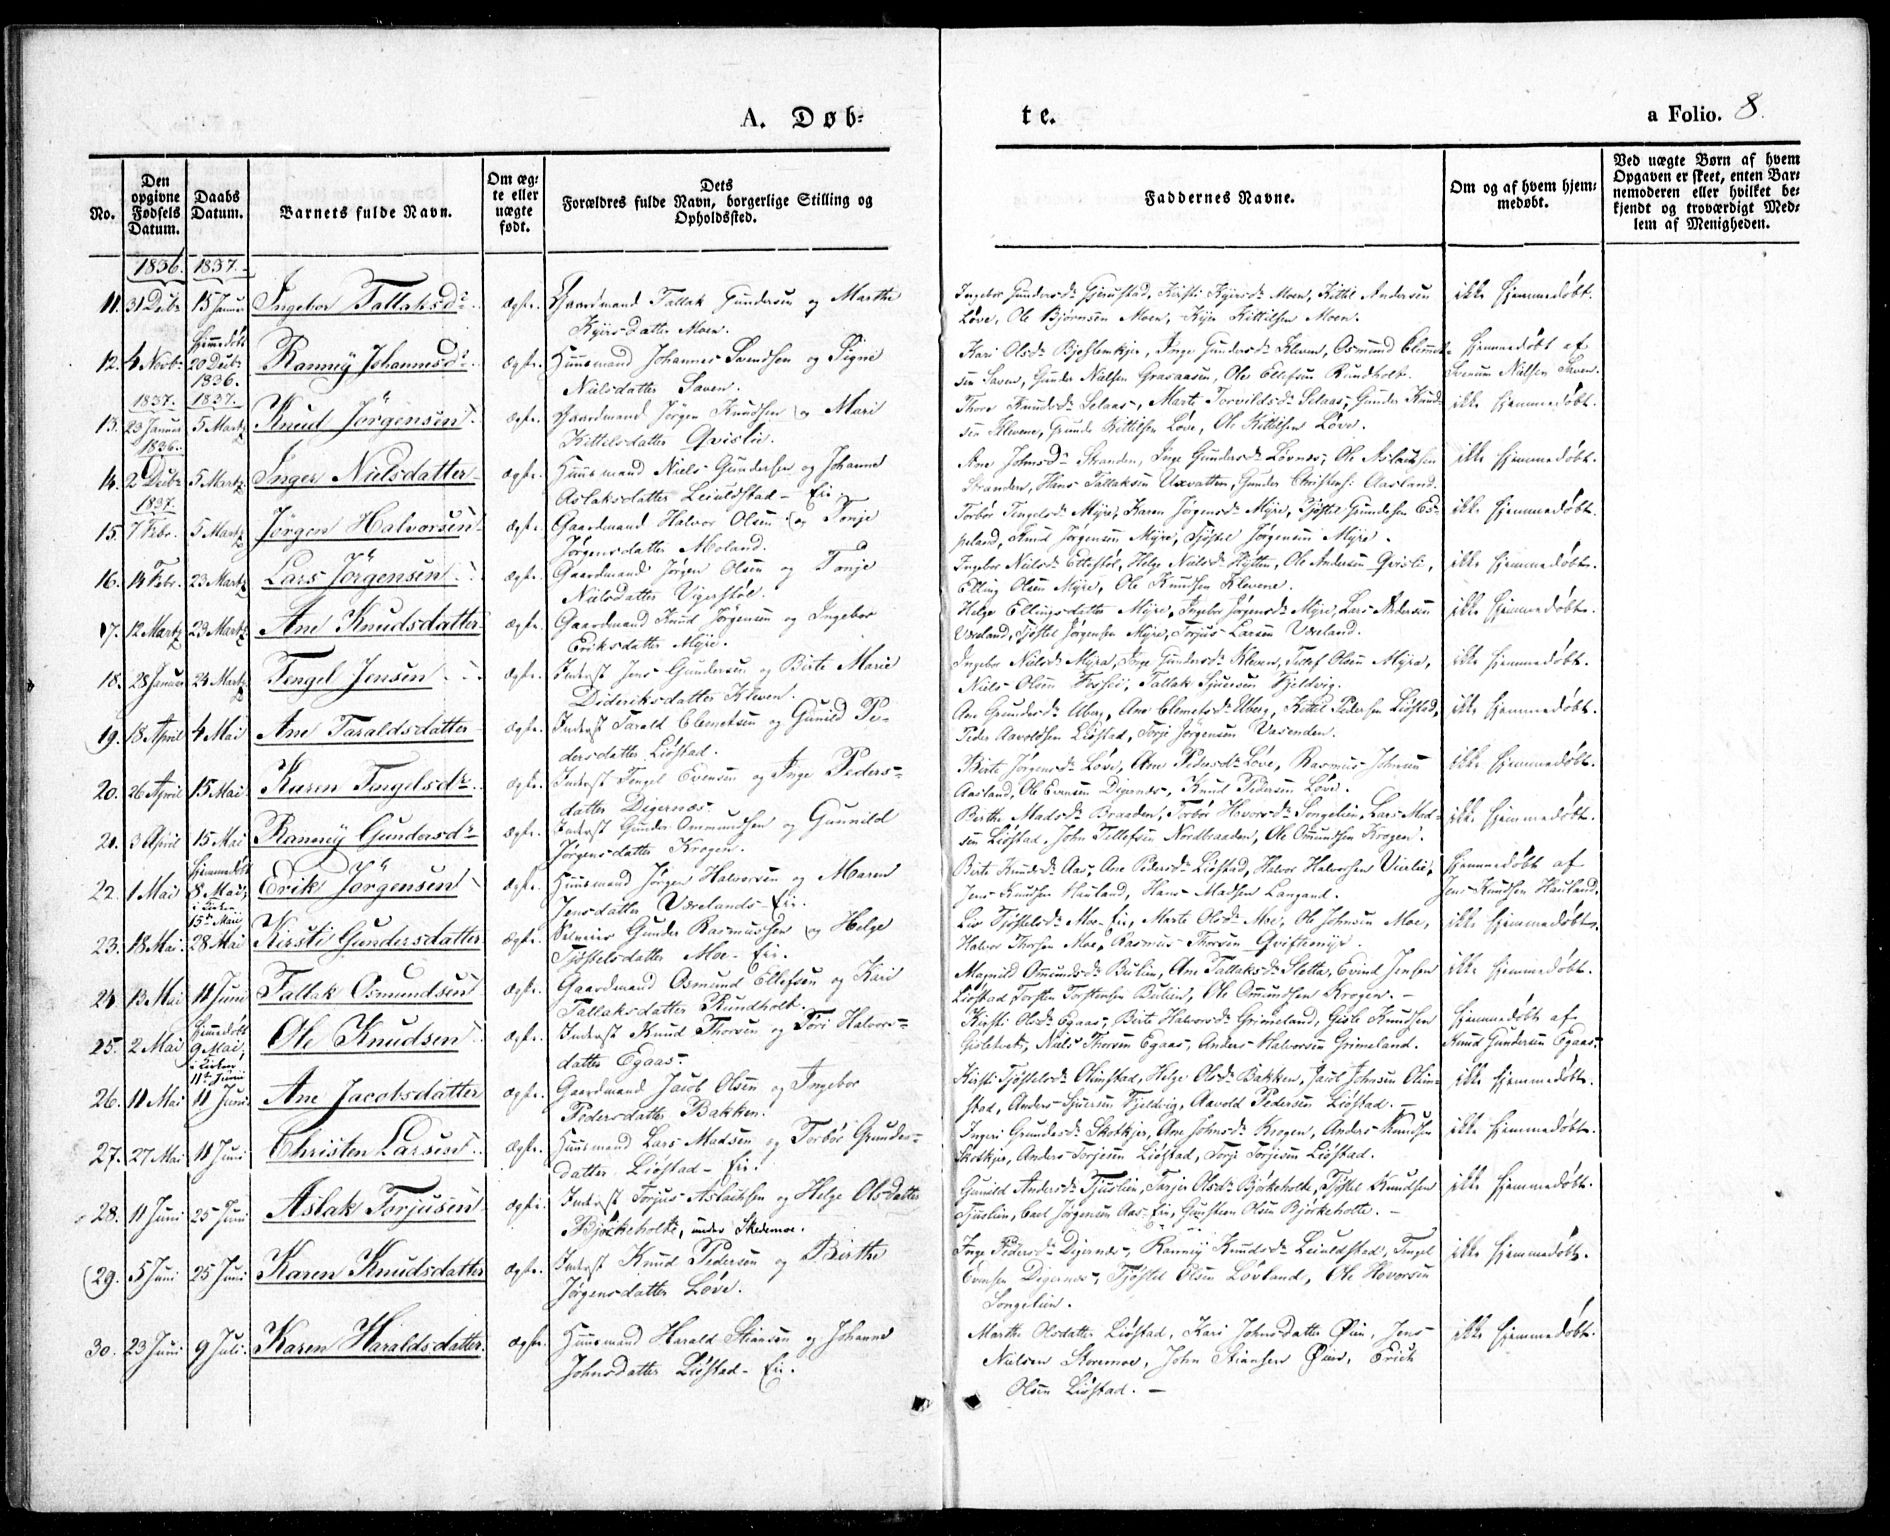 A. Døb-
te.
a Folio. 8.
No.
Den opgivne Fødsels Datum.
Daabs Datum.
Barnets fulde Navn.
Om ægte eller uægte født.
Dets Forældres fulde Navn, borgerlige Stilling og Opholdssted.
Faddernes Navne.
Om og af hvem hjemmedøbt.
Ved uægte Børn af hvem Opgaven er skeet, enten Barnemoderen eller hvilket bekjendt og troværdigt Medlem af Menigheden.
1836. 1837.
11. 31 Decbr 15 Januar Ingebor Tallaksdr ægte. Gaardmand Tallak Gundersen og Marthe
Kijrsdatter Moen.
Ingebor Gundersdr Gjerustad, Kirsti Kijrsdr Moen, Kittil Andersen
Løve, Ole Bjørnsen Moen, Kijr Kittilsen Moen.
ikke hjemmedøbt.
12. 4 Novbr hjemmedøbt 20 Decbr 1836. Ranney Johannesdr ægte. Huusmand Johannes Svendsen og Signe
Nielsdatter Saven.
Kari Olsdr Bjestemkjer, Inge Gundersdr Kleven, Osmund Clemet-
sen Saven, Gunder Nielsen Graaaasen, Ole Ellefsen Rundholt.
hjemmedøbt af
Svenum Nielsen Saven.
1837. 1837.
13. 23 Januar 5 Martz Knud Jørgensen ægte. Gaardmand Jørgen Knudsen og Mari
Kittilsdatter Qvislie.
Thore Knudsdr Selaas, Marte Torvildsdr Selaas, Gunder Knud-
sen Klevene, Gunde Kittilsen Løve, Ole Kittilsen Løve.
ikke hjemmedøbt.
1836.
14. 2 Decbr 5 Martz Inger Nielsdatter ægte. Huusmand Niels Gundersen og Johanne
Aslaksdatter Leiuldstad-Eie.
Ane Johnsdr Stranden, Inge Gundersdr Løvnes, Ole Aslaksen
Stranden, Hans Tallaksen Uxvatten, Gunder Christens: Aasland.
ikke hjemmedøbt.
1837.
15. 7 Febr. 5 Martz Jørgen Halvorsen ægte. Gaardmand Halvor Olsen og Tonje
Jørgensdatter Moland.
Torbør Tengelsdr Mijre, Karen Jørgensdr Mijre, Tjøstel Gundersen Es-
peland, Knud Jørgensen Mijre, Tjøstel Jørgensen Mijre.
ikke hjemmedøbt.
16. 14 Febr. 23 Martz Lars Jørgensen ægte. Gaardmand Jørgen Olsen og Tonje
Nielsdatter Vigerstøl.
Ingebor Nielsdr Ettestøl, Helge Nielsdr Hytten, Ole Andersen Qvisli,
Elling Olsen Mijre, Ole Knudsen Klevene.
ikke hjemmedøbt.
17. 12 Martz 23 Martz Ane Knudsdatter ægte. Gaardmand Knud Jørgensen og Ingebor
Eriksdatter Mijre.
Helge Ellingsdatter Mijre, Ingebor Jørgensdr Mijre, Lars Andersen
Væreland, Tjøstel Jørgensen Mijre, Torjus Larsen Væreland.
ikke hjemmedøbt.
18. 28 Januar 24 Martz Tengel Jensen ægte. Inderst Jens Gundersen og Birte Marie
Dideriksdatter Kleven.
Ingebor Nielsdr Mijra, Inge Gundersdr Kleven, Tellef Olsen Mijra,
Niels Olsen Fossie, Tallak Sjuersen Fjeldvig.
ikke hjemmedøbt.
19. 18 April 4 Mai Ane Taraldsdatter ægte. Inderst Tarald Clemetsen og Gunild Pe-
dersdatter Liøstad.
Ane Grundesdr Uberg, Ane Clemetsdr Uberg, Kittel Pedersen Liøstad,
Peder Aavoldsen Liøstad, Torje Jørgensen Vasenden.
ikke hjemmedøbt.
20. 26 April 15 Mai Karen Tengelsdr ægte. Inderst Tengel Evensen og Inge Peders-
datter Digernæs.
Birte Jørgensdr Løve, Ane Pedersdr Løve, Rasmus Johnsen
Aasland, Ole Evensen Digernæs, Knud Pedersen Løve.
ikke hjemmedøbt.
21. 3 April 15 Mai Ranney Gundersdr ægte. Inderst Gunder Ommundsen og Gunnild
Jørgensdatter Krogen.
Berthe Madsdr Braaden, Torbør Hovorsdr Songelien, Lars Mad-
sen Liøstad, John Tellefsen Nordbraaden, Ole Ommundsen Krogen.
ikke hjemmedøbt.
22. 1 Mai hjemmedøbt 8 Mai, i Kirken 15de Mai, Erik Jørgensen ægte. Huusmand Jørgen Halvorsen og Maren
Jensdatter Værelands-Eie.
Birte Knudsdr Aas, Ane Pedersdr Liøstad, Halvor Halvorsen Vierlie,
Jens Knudsen Hauland, Hans Madsen Langand.
hjemmedøbt af
Jens Knudsen Hauland.
23. 18 Mai 28 Mai Kirsti Gundersdatter ægte. Gunder Rasmussen og Helge
Tjøstelsdatter Moe-Eie.
Liv Tjøstelsdr Moe-Eie, Marte Olsdr Moe, Ole Johnsen Moe,
Halvor Thorsen Moe, Rasmus Thorsen Qviftemyr.
ikke hjemmedøbt.
24. 13 Mai 11 Juni Tallak Osmundsen ægte. Gaardmand Osmund Ellefsen og Kari
Tallaksdatter Rundholt.
Magnild Ommundsdr Bulien, Ane Tallaksdr Sletta, Evind Jensen
Liøstad Torsten Torstensen Bulien, Ole Ommundsen Krogen.
ikke hjemmedøbt.
25. 2 Mai hjemmedøbt 9 Mai, i Kirken 11te Juni Ole Knudsen ægte. Inderst Knud Thorsen og Tori Halvors-
datter Egaas.
Kirsti Olsdr Egaas, Birte Halvorsdr Grimeland, Gisle Knudsen
Gisletvet, Niels Thorsen Egaas, Anders Halvorsen Grimeland.
hjemmedøbt af
Knud Gundersen Egaas.
26. 11 Mai 11 Juni Ane Jacobsdatter ægte. Gaardmand Jacob Olsen og Ingebor
Pedersdatter Bakken.
Kirsti Tjøstelsdr Olimstad, Helge Olsdr Bakken, Jacob Johnsen Olim-
stad, Anders Sjuersen Fjeldvig, Aavold Pedersen Liøstad.
ikke hjemmedøbt.
27. 27 Mai 11 Juni Christen Larsen ægte. Huusmand Lars Madsen og Torbør Grundes-
datter Liøstad-Eie.
Ingeri Grundesdr Skotkjer, Ane Johnsdr Krogen, Anders Knudsen
Skotkjer, Anders Torjesen Liøstad, Torje Torjesen Liøstad.
ikke hjemmedøbt.
28. 11 Juni 25 Juni Aslak Torjusen ægte. Inderst Torjus Aslaksen og Helge Olsdatter
Bjørkeholte, under Skedemoe.
Gunild Andersdr Tjuslien, Torjer Olsdr Bjørkeholte, Tjøstel Knudsen
Tjuslien, Carl Jørgensen Aas-Eie, Christian Olsen Bjørkeholte.
ikke hjemmedøbt.
29. 5 Juni 25 Juni Karen Knudsdatter ægte. Inderst Knud Pedersen og Birthe
Jørgensdatter Løve.
Inge Pedersdr Digernæs, Ranney Knudsdr Leiuldstad, Tengel
Evensen Digernæs, Tjøstel Olsen Løvland, Ole Hovorsen
Songelien.
ikke hjemmedøbt.
30. 23 Juni 9 Juli. Karen Haraldsdatter ægte. Huusmand Harald Stiansen og Johanne
Johnsdatter Liøstad-Eie.
Marthe Olsdatter Liøstad, Kari Johnsdatter Øien, Jens
Nielsen Storemoe, John Stiansen Øien, Erich
Olsen Liøstad.
ikke hjemmedøbt.